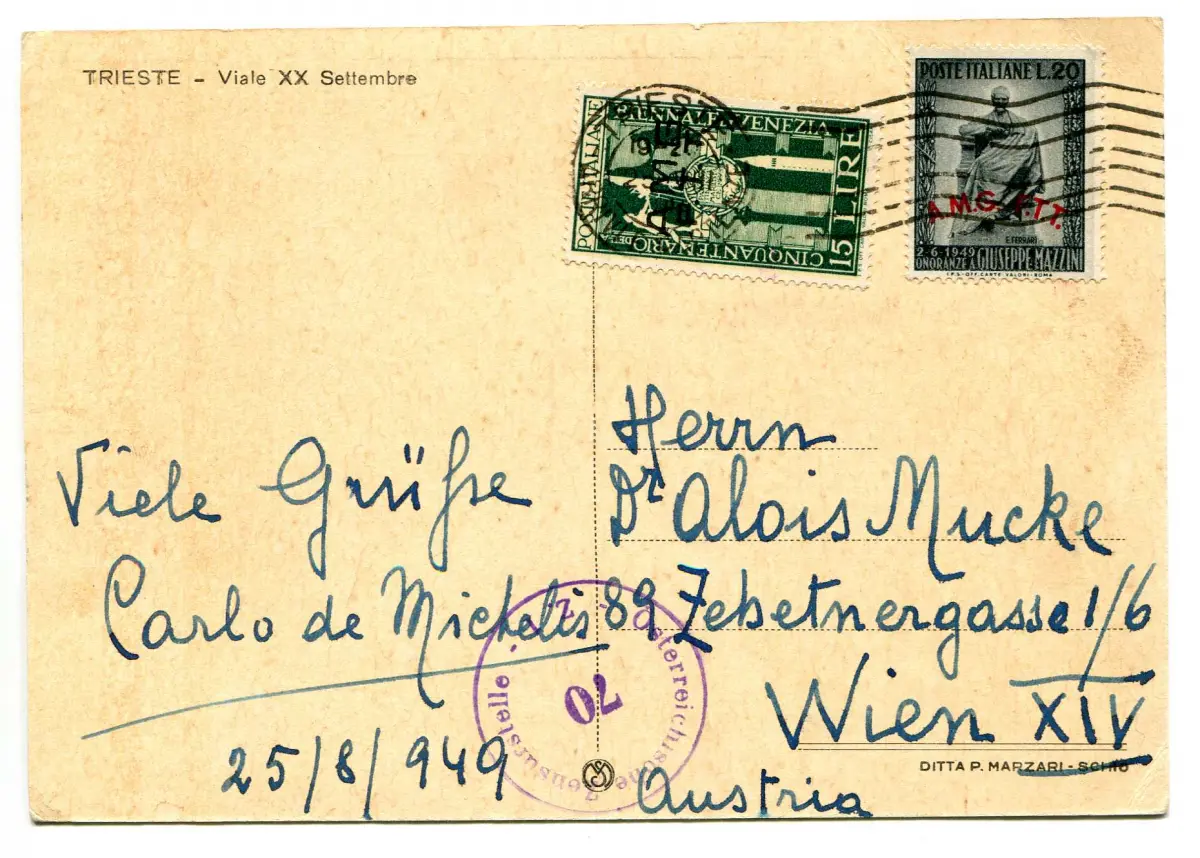 TRIESTE - Viale XX Settembre
POSTE ITALIANE
BIENNALE DI VENEZIA
CINQUANTENARIO DELLA
15 LIRE
POSTE ITALIANE L.20
A.M.G. F.T.T.
E. FERRARI
2-6-1949
ONORANZE A GIUSEPPE MAZZINI
I.P.S.-OFF.CARTE VALORI-ROMA
Viele Grüße
Carlo de Michelis
25/8/949
Herrn
Dr Alois Mucke
89 Zehetnergasse 1/6
Wien XIV
Austria
Österreichische Zensurstelle - Z -
70
DITTA P. MARZARI - SCHIO